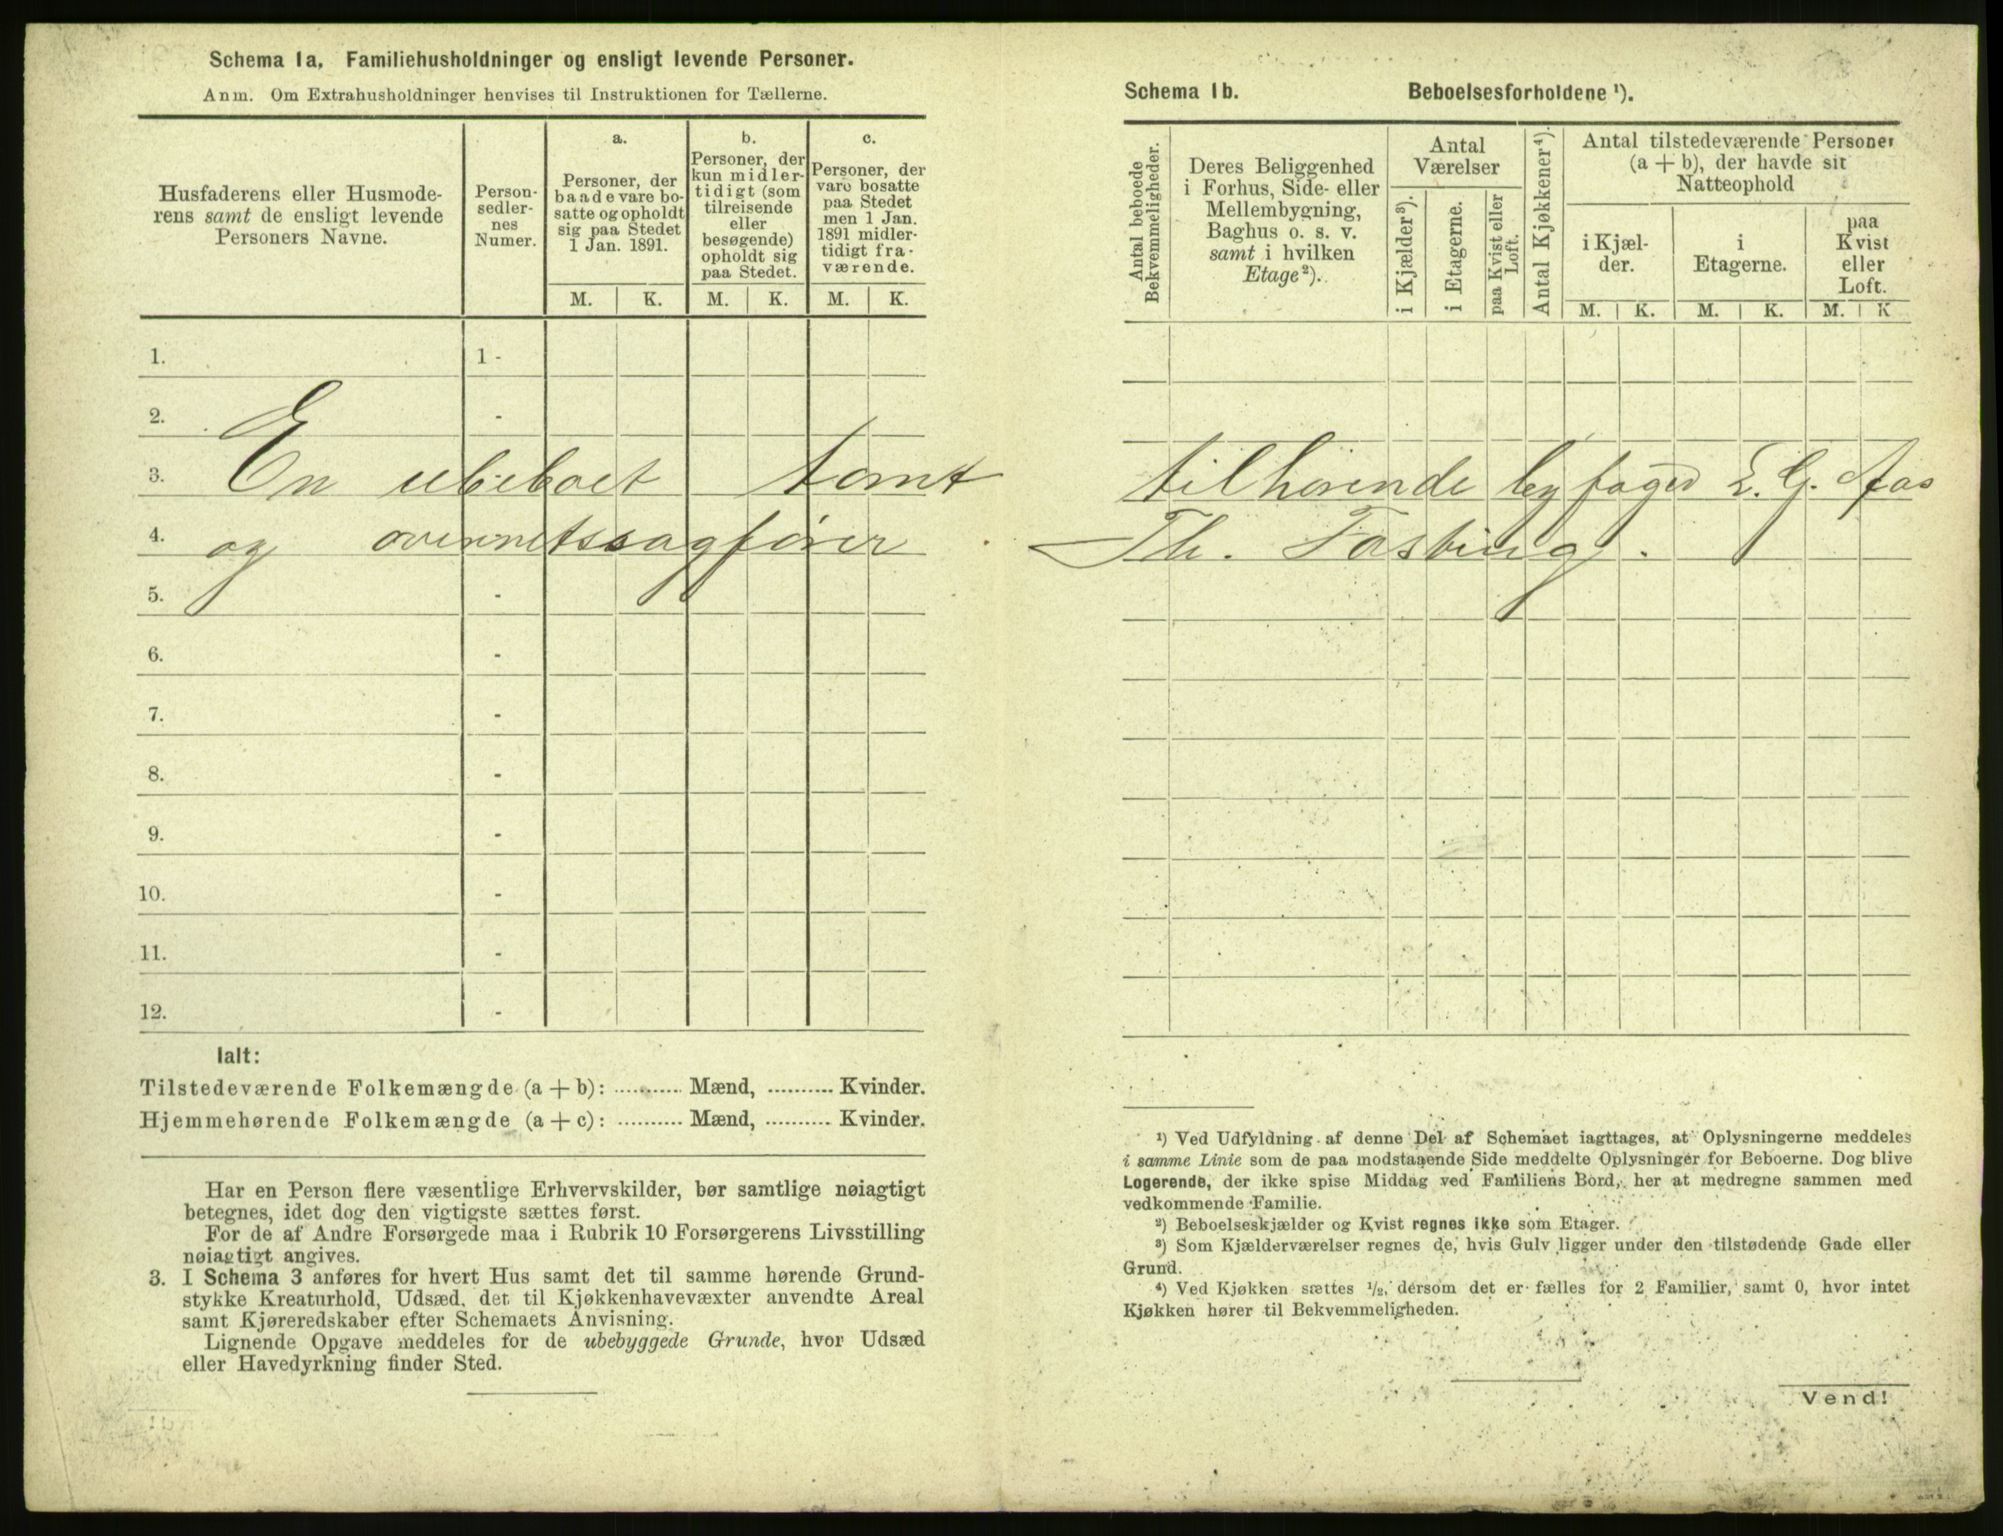 Schema 1a. Familiehusholdninger og ensligt levende Personer.
Anm. Om Extrahusholdninger henvises til Instruktionen for Tællerne.
Husfaderens eller Husmode-
rens samt de ensligt levende
Personers Navne.
Person-
sedler-
nes
Numer.
a.
Personer, der
baade vare bo-
satte og opholdt
sig paa Stedet
1 Jan. 1891.
b.
Personer, der
kun midler-
tidigt (som
tilreisende
eller
besøgende)
opholdt sig
paa Stedet.
c.
Personer, der
vare bosatte
paa Stedet
men 1 Jan.
1891 midler-
tidigt fra-
værende.
M. K. M. K. M. K.
1. 1 -
2. -
3. En ubeboet tomt
4. og overretssagfører
5. -
6. -
7. -
8. -
9. -
10. -
11. -
12. -
Ialt:
Tilstedeværende Folkemængde (a + b): .......... Mænd, .......... Kvinder.
Hjemmehørende Folkemængde (a + c): .......... Mænd, .......... Kvinder.
Har en Person flere væsentlige Erhvervskilder, bør samtlige nøiagtigt
betegnes, idet dog den vigtigste sættes først.
For de af Andre Forsørgede maa i Rubrik 10 Forsørgerens Livsstilling
nøiagtigt angives.
3. I Schema 3 anføres for hvert Hus samt det til samme hørende Grund-
stykke Kreaturhold, Udsæd, det til Kjøkkenhavevæxter anvendte Areal
samt Kjøreredskaber efter Schemaets Anvisning.
Lignende Opgave meddeles for de ubebyggede Grunde, hvor Udsæd
eller Havedyrkning finder Sted.
Schema 1b. Beboelsesforholdene ¹).
Antal beboede
Bekvemmeligheder.
Deres Beliggenhed
i Forhus, Side- eller
Mellembygning,
Baghus o. s. v.
samt i hvilken
Etage²).
Antal
Værelser
i Kjælder³).
i Etagerne.
paa Kvist eller
Loft.
Antal Kjøkkener⁴).
Antal tilstedeværende Personer
(a + b), der havde sit
Natteophold
i Kjæl-
der.
i
Etagerne.
paa
Kvist
eller
Loft.
M. K. M. K. M. K
tilhørende byfoged E. G. Aas
Th. Fasting.
¹) Ved Udfyldning af denne Del af Schemaet iagttages, at Oplysningerne meddeles
i samme Linie som de paa modstaaende Side meddelte Oplysninger for Beboerne. Dog blive
Logerende, der ikke spise Middag ved Familiens Bord, her at medregne sammen med
vedkommende Familie.
²) Beboelseskjælder og Kvist regnes ikke som Etager.
³) Som Kjælderværelser regnes de, hvis Gulv ligger under den tilstødende Gade eller
Grund.
⁴) Ved Kjøkken sættes ½, dersom det er fælles for 2 Familier, samt 0, hvor intet
Kjøkken hører til Bekvemmeligheden.
Vend!